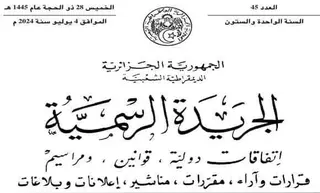 العدد 45
الخميس 28 ذو الحجة عام 1445 هـ
السنة الواحدة والستون
الموافق 4 يوليو سنة 2024 م
الجمهورية الجزائرية
الديمقراطية الشعبية
الجريدة الرسمية
إتفاقات دولية، قوانين، ومراسيم
قرارات وآراء، مقررات، مناشير، إعلانات وبلاغات